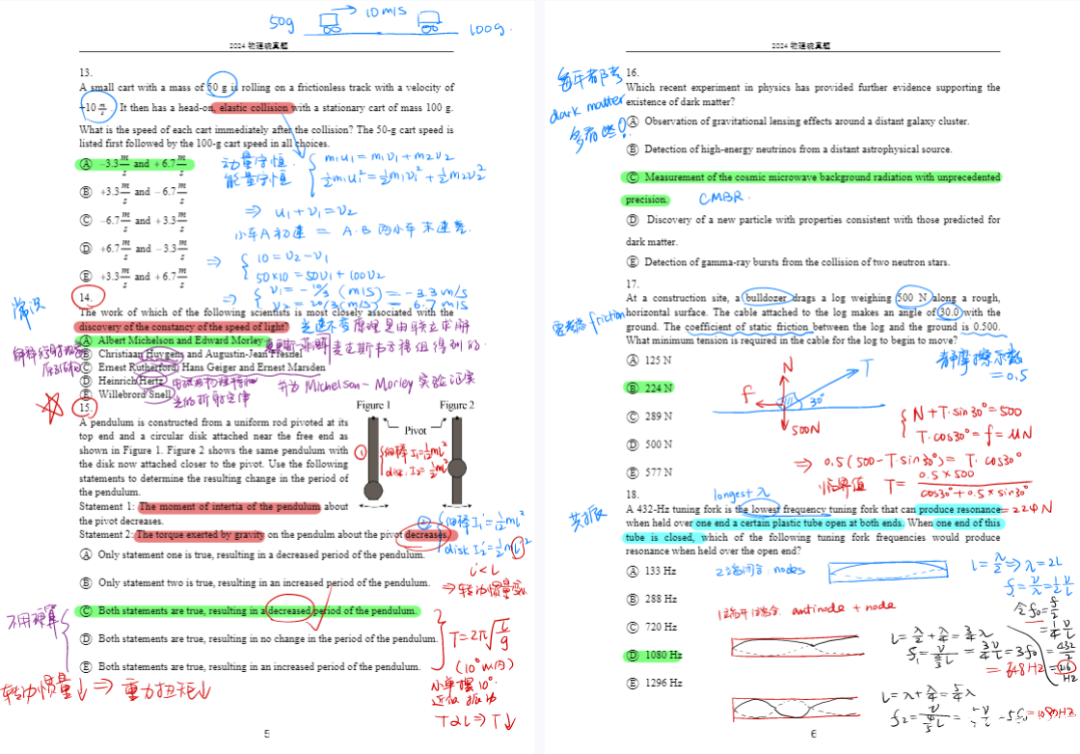 50g
10m/s
100g.
2024 物理碗真题
13.
A small cart with a mass of 50 g is rolling on a frictionless track with a velocity of
+10 m/s. It then has a head-on, elastic collision with a stationary cart of mass 100 g.
What is the speed of each cart immediately after the collision? The 50-g cart speed is
listed first followed by the 100-g cart speed in all choices.
Ⓐ −3.3 m/s and +6.7 m/s
Ⓑ +3.3 m/s and −6.7 m/s
Ⓒ −6.7 m/s and +3.3 m/s
Ⓓ +6.7 m/s and −3.3 m/s
Ⓔ +3.3 m/s and +6.7 m/s
动量守恒
能量守恒
m₁u₁=m₁v₁+m₂v₂
½m₁u₁²=½m₁v₁²+½m₂v₂²
⇒ u₁+v₁=v₂
小车A初速 = A.B两小车末速差.
⇒ 10=v₂-v₁
50×10=50v₁+100v₂
⇒ v₁=-10/3 (m/s)=-3.3m/s
v₂=20/3(m/s)=6.7m/s
常识
14.
The work of which of the following scientists is most closely associated with the
discovery of the constancy of the speed of light?
Ⓐ Albert Michelson and Edward Morley
Ⓑ Christiaan Huygens and Augustin-Jean Fresnel
Ⓒ Ernest Rutherford, Hans Geiger and Ernest Marsden
Ⓓ Heinrich Hertz
Ⓔ Willebrord Snell
光速不变原理是由联立求解
麦克斯韦方程组得到的.
并为Michelson-Morley实验证实
光的折射定律
15.
A pendulum is constructed from a uniform rod pivoted at its
top end and a circular disk attached near the free end as
shown in Figure 1. Figure 2 shows the same pendulum with
the disk now attached closer to the pivot. Use the following
statements to determine the resulting change in the period of
the pendulum.
Figure 1
Figure 2
Pivot
①
细棒 I₁=½mL²
disk. I₂=½mL²
Statement 1: The moment of intertia of the pendulum about
the pivot decreases.
Statement 2: The torque exerted by gravity on the pendulm about the pivot decreases.
②
细棒I₁'=½mL²
disk I₂'=½mL'²
L'<L
⇒转动惯量变
Ⓐ Only statement one is true, resulting in a decreased period of the pendulum.
Ⓑ Only statement two is true, resulting in an increased period of the pendulum.
Ⓒ Both statements are true, resulting in a decreased period of the pendulum.
Ⓓ Both statements are true, resulting in no change in the period of the pendulum.
Ⓔ Both statements are true, resulting in an increased period of the pendulum.
不用硬算
T=2π√(L/g)
(10°以内)
小单摆10°
T∝L⇒T↓
转动惯量↓ ⇒ 重力扭矩↓
5
2024 物理碗真题
每年都考
dark matter
多看些!
16.
Which recent experiment in physics has provided further evidence supporting the
existence of dark matter?
Ⓐ Observation of gravitational lensing effects around a distant galaxy cluster.
Ⓑ Detection of high-energy neutrinos from a distant astrophysical source.
Ⓒ Measurement of the cosmic microwave background radiation with unprecedented
precision.
CMBR.
Ⓓ Discovery of a new particle with properties consistent with those predicted for
dark matter.
Ⓔ Detection of gamma-ray bursts from the collision of two neutron stars.
17.
At a construction site, a bulldozer drags a log weighing 500 N along a rough,
horizontal surface. The cable attached to the log makes an angle of 30.0 with the
ground. The coefficient of static friction between the log and the ground is 0.500.
What minimum tension is required in the cable for the log to begin to move?
friction
静摩擦系数
=0.5
Ⓐ 125 N
Ⓑ 224 N
Ⓒ 289 N
Ⓓ 500 N
Ⓔ 577 N
N
T
f
30°
500N
N+T·sin30°=500
T·cos30°=f=μN
⇒ 0.5(500-Tsin30°)=T·cos30°
临界值 T= 0.5×500/(cos30°+0.5×sin30°)
=224N
18.
longest λ
共振
A 432-Hz tuning fork is the lowest frequency tuning fork that can produce resonance
when held over one end a certain plastic tube open at both ends. When one end of this
tube is closed, which of the following tuning fork frequencies would produce
resonance when held over the open end?
Ⓐ 133 Hz
Ⓑ 288 Hz
Ⓒ 720 Hz
Ⓓ 1080 Hz
Ⓔ 1296 Hz
nodes
L=λ/2⇒λ=2L
antinode + node
L=λ/2+λ/4=¾λ
=3f₀
=648Hz
L=λ+λ/4=5/4λ
=1080HZ.
6